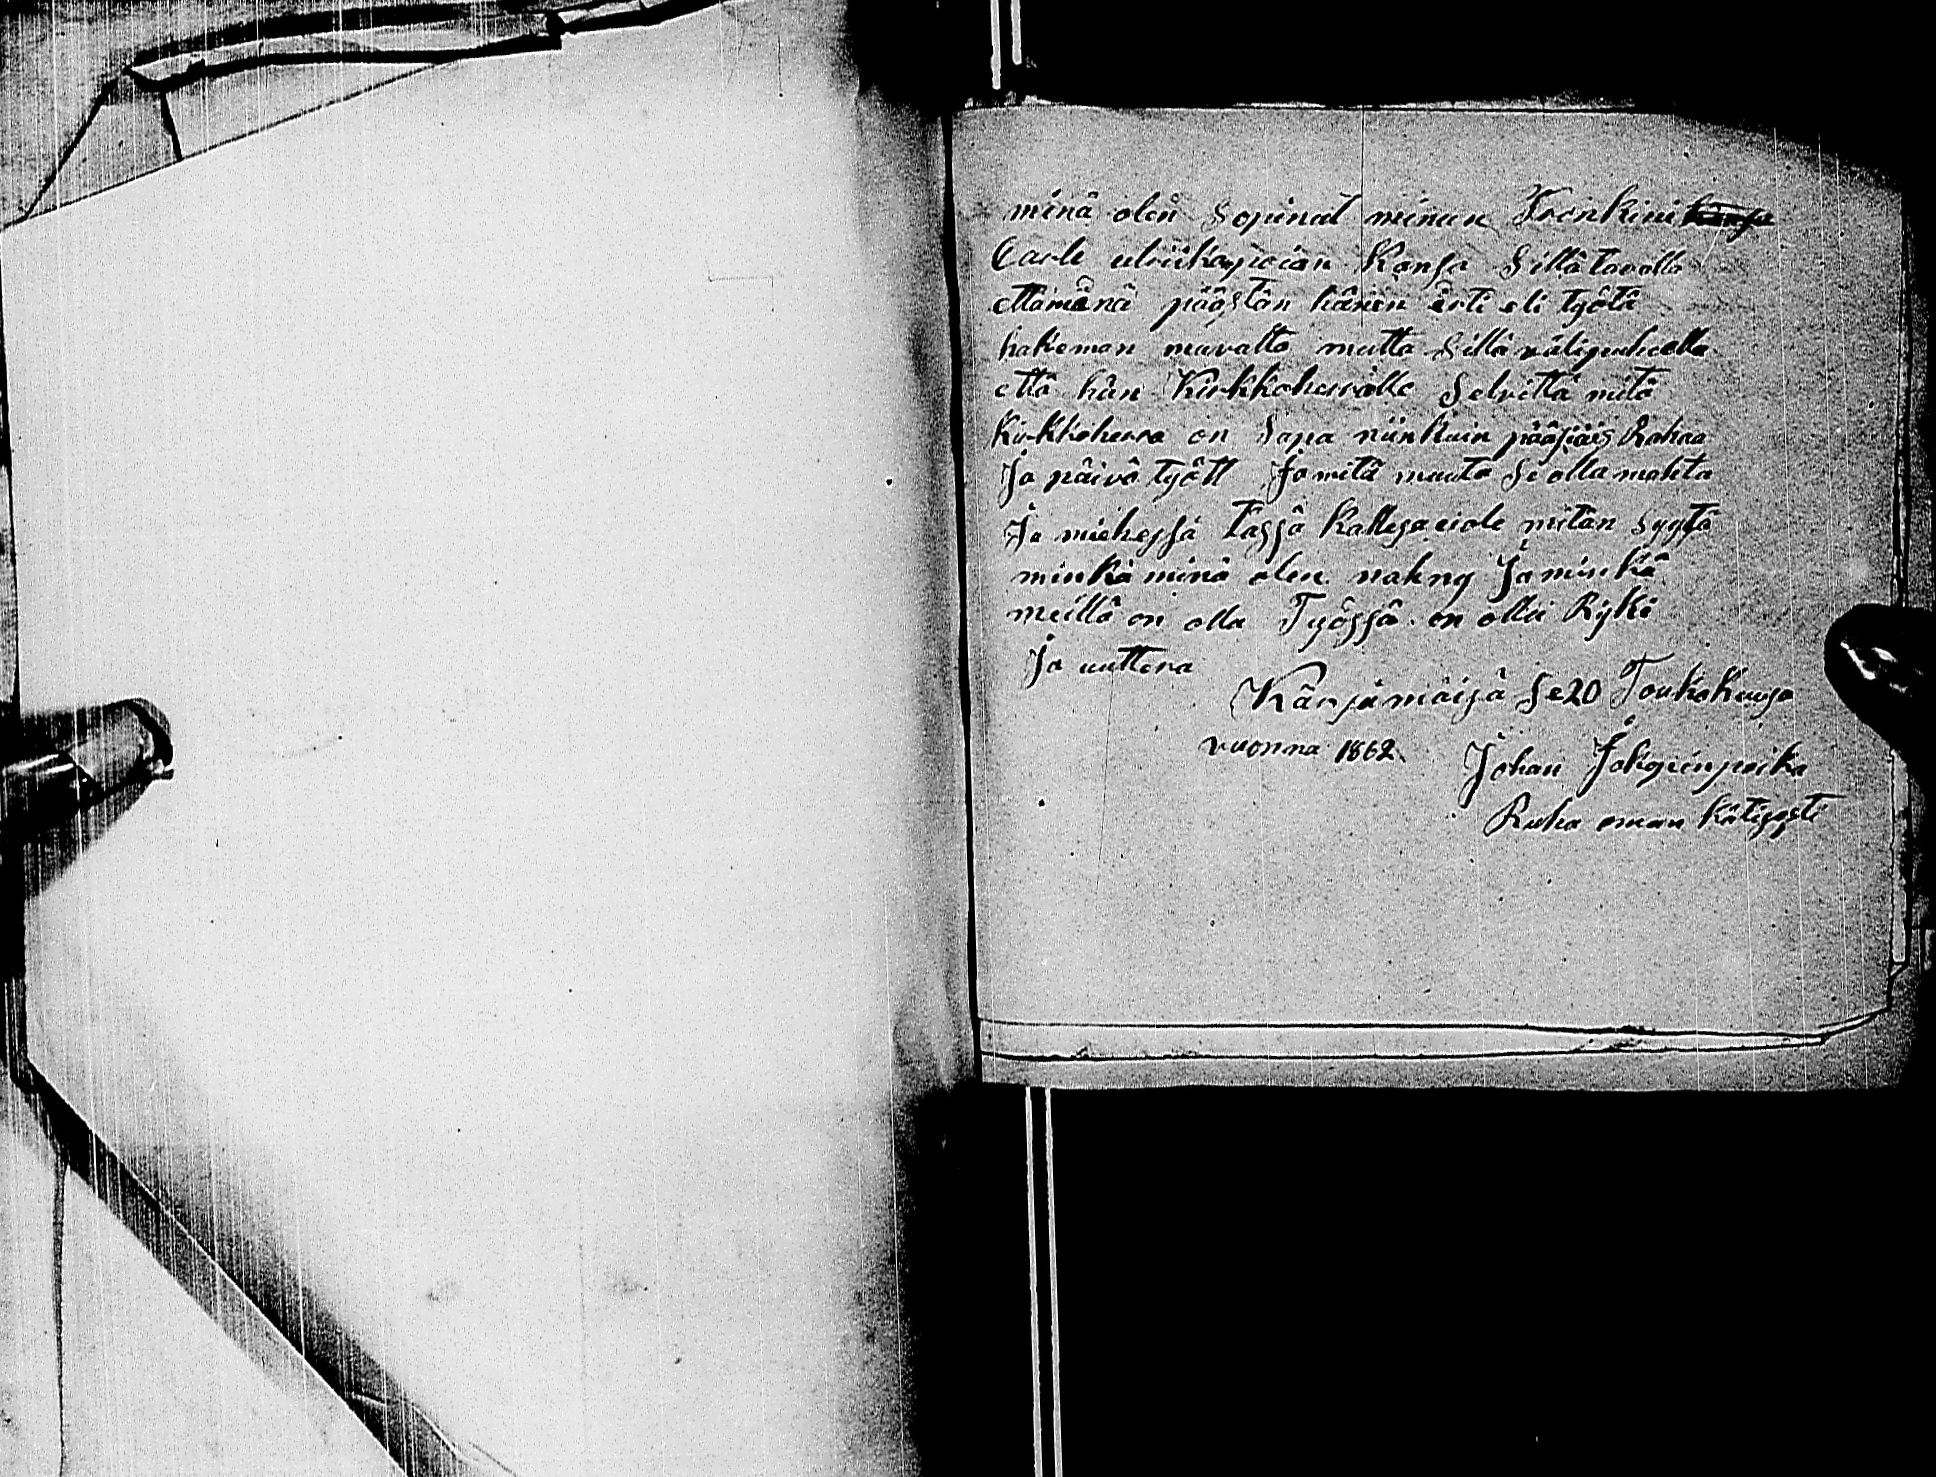 minä olen Sopinut minun Trenkini
Carle ulriikapoian Kansa Sillä tavalla
ettäminä päästän hänen ärti eli työtä
hakeman muvalta mutta Sillä välipuheella
että hän Kirkkoherralle Selvittä mitä
Kirkkoherra on Sapa niinkuin pääsiäis Rahaa
Ja päivä tyött Ja mitä muuta Se olla mahta
Ja miehessä tässä Kallessa eiole mitän syytä
minkä minä olen nähny Ja minkä
meillä on olla Työssä on ollu
Ja uuttera
Kärjämäisä Se 20 Toukokuusa
vuonna 1862
Johan Jakopinpoika
Ruha oman kätisesti